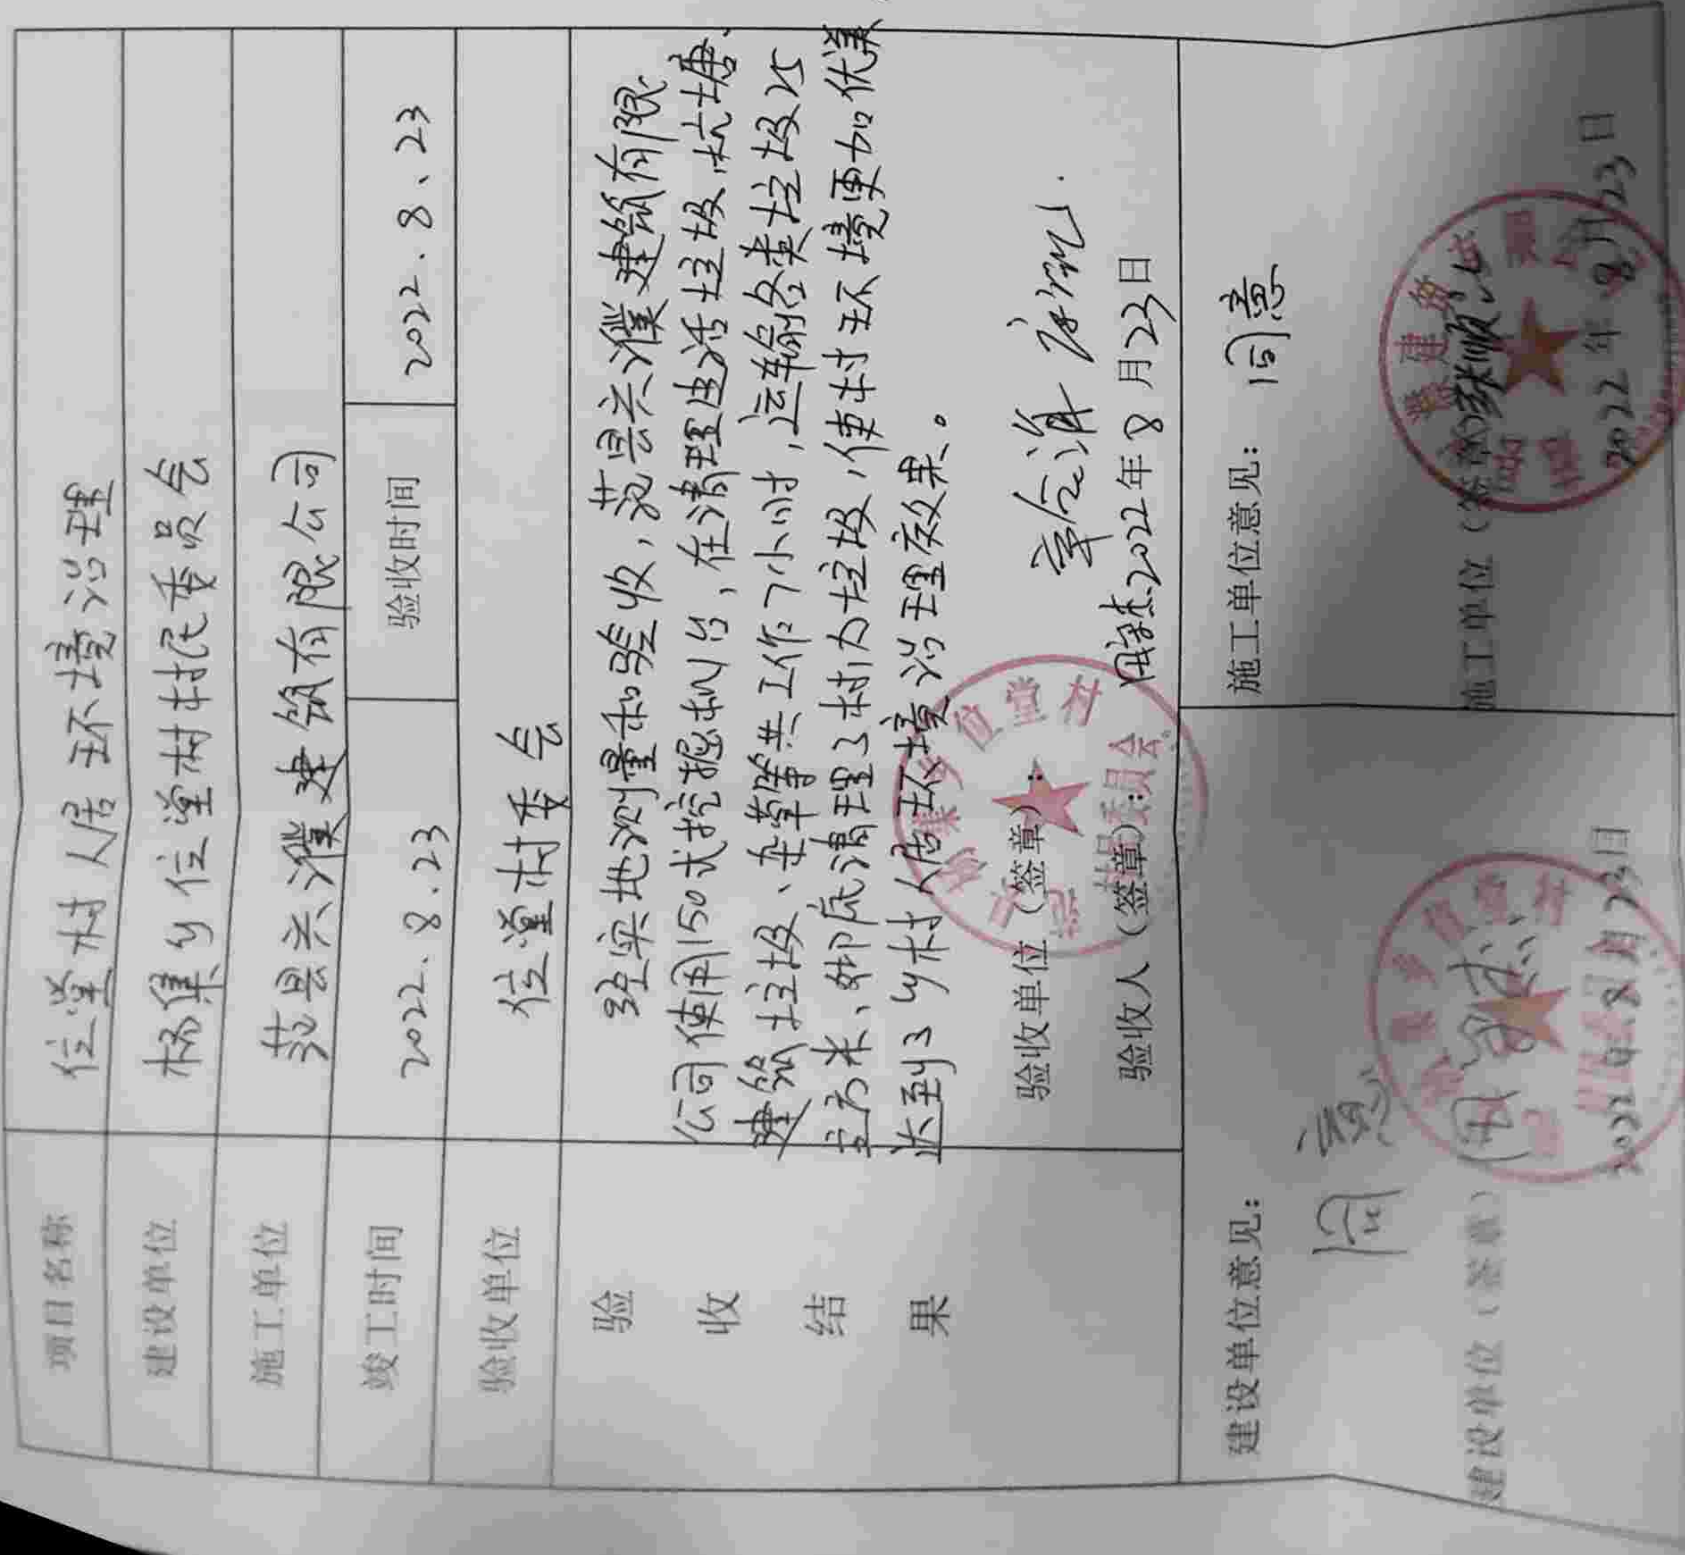 项目名称 位堂村人居环境治理
建设单位 杨集乡位堂村村民委员会
施工单位 范县兴濮建筑有限公司
竣工时间 2022.8.23 验收时间 2022.8.23
验收单位 位堂村委会
验收结果
经实地测量和验收,范县兴濮建筑有限
公司使用150式挖掘机1台,在清理生活垃圾,坑塘、
建筑垃圾、杂草等共工作7小时,运输各类垃圾25
立方米、彻底清理了村内垃圾,使村庄环境更加优美
达到了乡村人居环境治理效果。
验收单位(签章):
验收人(签章): 2022年8月23日
建设单位意见:
同意
建设单位(签章)
2022年8月23日
施工单位意见:
同意
施工单位(签章)
2022年8月23日
位堂村
村民委员会
濮建筑